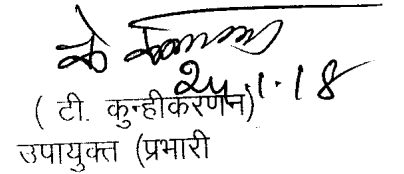 24.1.18
( टी. कुन्हीकरणन)
उपायुक्त (प्रभारी